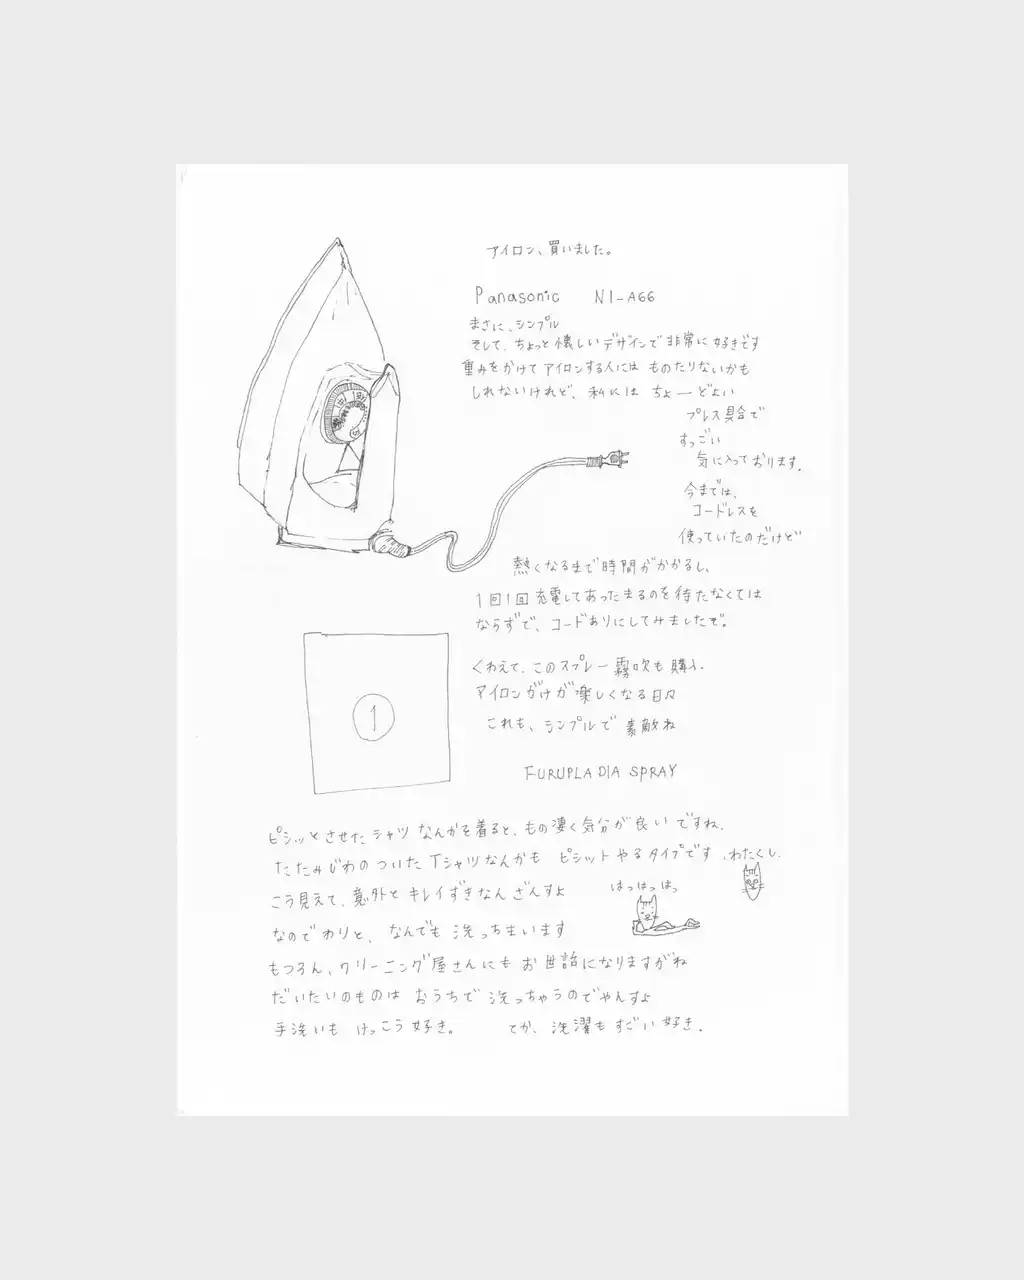 アイロン、買いました。
Panasonic NI-A66
まさに、シンプル
そして、ちょっと懐しいデザインで非常に好きです
重みをかけてアイロンする人には ものたりないかも
しれないけれど、私には ちょーどよい
プレス具合で
すっごい
気に入っております。
今までは、
コードレスを
使っていたのだけど
熱くなるまで時間がかかるし、
1回1回充電してあったまるのを待たなくては
ならずで、コードありにしてみましたぞ。
くわえて、このスプレー霧吹も購入
アイロンがけが楽しくなる日々
これも、シンプルで素敵ね
1
FURUPLA DIA SPRAY
ピシッとさせたシャツなんかを着ると、もの凄く気分が良いですね、
たたみじわのついたTシャツなんかも ピシットやるタイプです、わたくし。
こう見えて、意外とキレイずきなんざんすよ
はっはっはっ
なのでわりと、なんでも洗っちまいます
もつろん、クリーニング屋さんにもお世話になりますがね
だいたいのものは おうちで洗っちゃうのでやんすよ
手洗いも けっこう好き。 てか、洗濯もすごい好き。